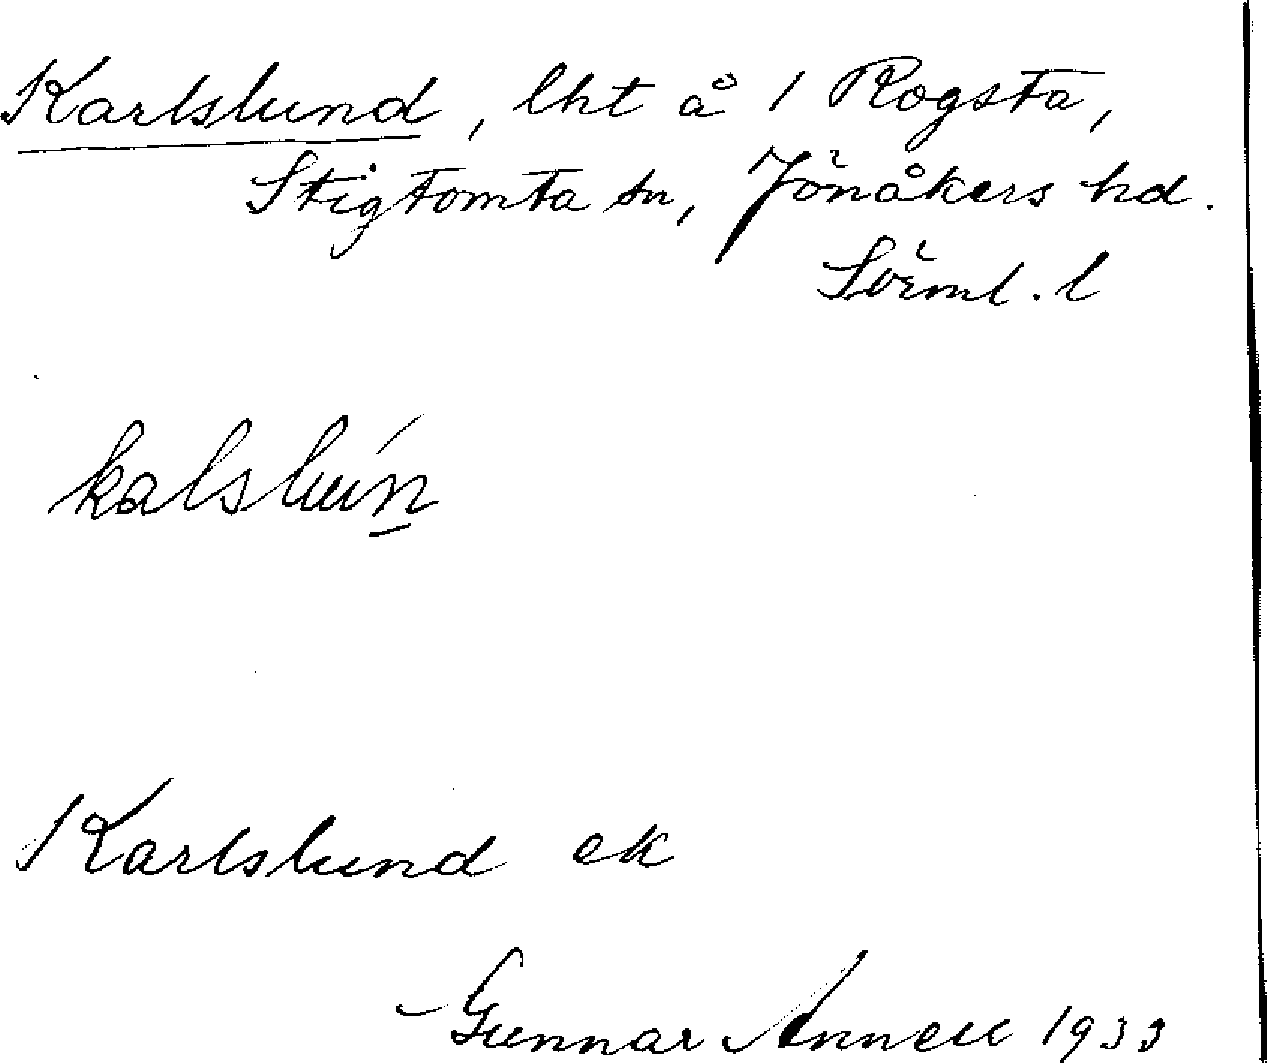 Karlslund, lht å 1 Rogsta,
Stigtomta sn, Jönåkers hd.
Sörml. l
kalslún̲
Karlslund ek
Gunnar Annell 1933